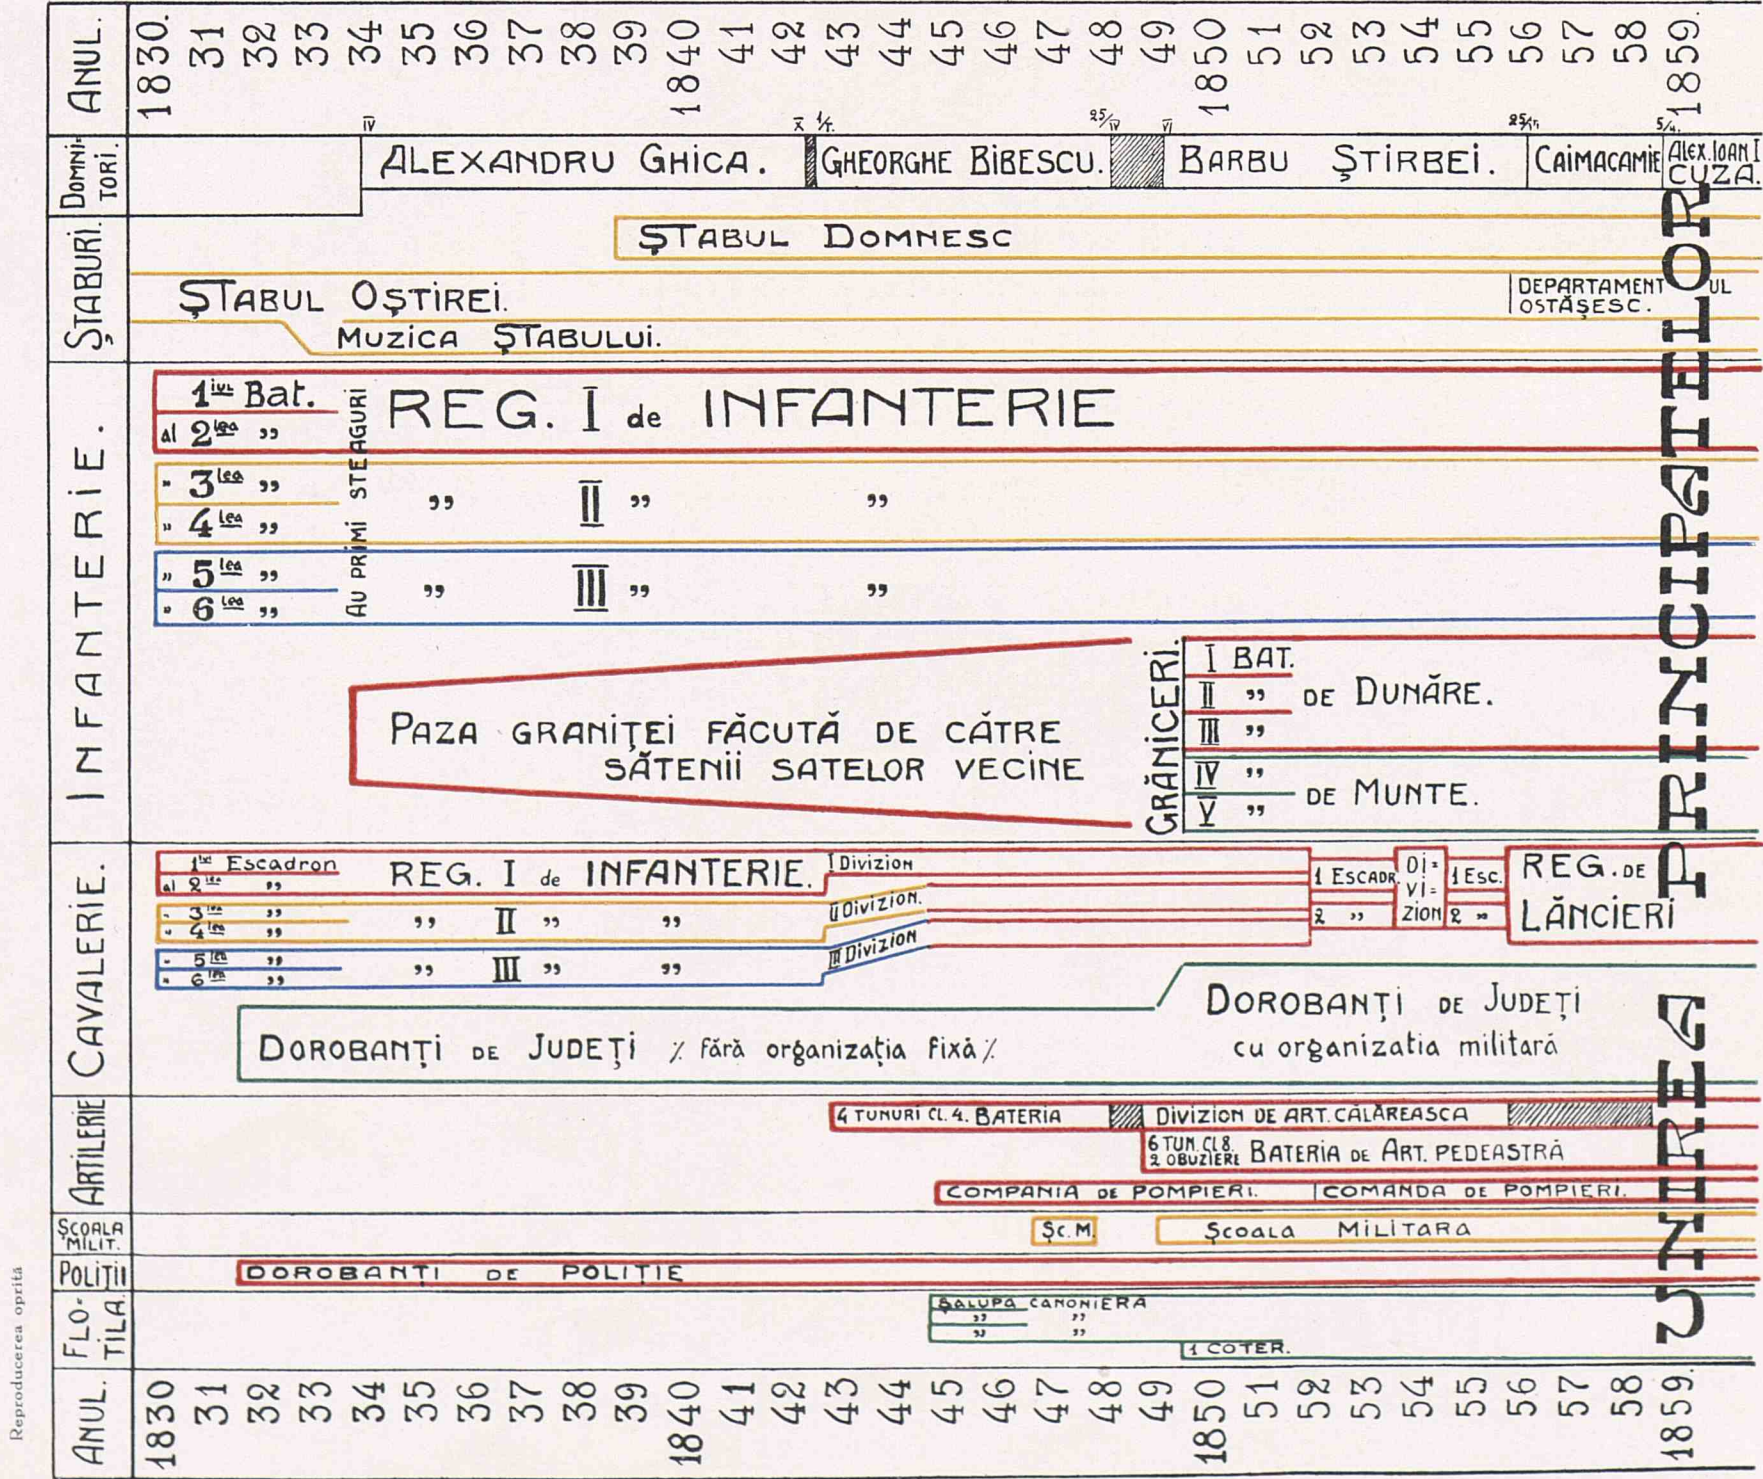 ANUL. 1830. 31 32 33 34 35 36 37 38 39 1840 41 42 43 44 45 46 47 48 49 1850 51 52 53 54 55 56 57 58 1859.
DOMNI-
TORI.
IV X 1/I. 25/IV VI
ALEXANDRU GHICA. GHEORGHE BIBESCU. BARBU ȘTIRBEI. CAIMACAMIE ALEX.IOAN I
CUZA.
ȘTABURI.
ȘTABUL DOMNESC
ȘTABUL OȘTIREI.
DEPARTAMENTUL
OSTĂȘESC.
MUZICA ȘTABULUI.
INFANTERIE.
1iul Bat.
al 2lea „
„ 3lea „
„ 4lea „
„ 5lea „
„ 6lea „
AU PRIMI STEAGURI
REG. I de INFANTERIE
„ II „ „
„ III „ „
PAZA GRANIȚEI FĂCUTĂ DE CĂTRE
SĂTENII SATELOR VECINE
GRĂNICERI.
I BAT.
II „ DE DUNĂRE.
III „
IV „
V „ DE MUNTE.
CAVALERIE.
1iul Escadron
al 2lea „
„ 3lea „
„ 4lea „
„ 5lea „
„ 6lea „
REG. I de INFANTERIE.
„ II „ „
„ III „ „
I Divizion
II Divizion.
III Divizion
1 ESCADR.
2 „
Di=
vi=
ZION
1 Esc.
2 „
REG. DE
LĂNCIERI
DOROBANȚI DE JUDEȚI ٪ fără organizația fixă ٪
DOROBANȚI DE JUDEȚI
cu organizatia militară
ARTILERIE
4 TUNURI CL. 4. BATERIA DIVIZION DE ART. CĂLĂREASCA
6 TUN. CL 8.
2 OBUZIERE BATERIA DE ART. PEDEASTRĂ
COMPANIA DE POMPIERI. COMANDA DE POMPIERI.
ȘCOALA
MILIT.
Șc. M. ȘCOALA MILITARA
POLIȚII
DOROBANȚI DE POLIȚIE
FLO-
TILA.
ȘALUPA CANONIERA
„ „
„ „
1 COTER.
UNIREA PRINCIPATELOR
ANUL. 1830 31 32 33 34 35 36 37 38 39 1840 41 42 43 44 45 46 47 48 49 1850 51 52 53 54 55 56 57 58 1859.
Reproducerea oprită